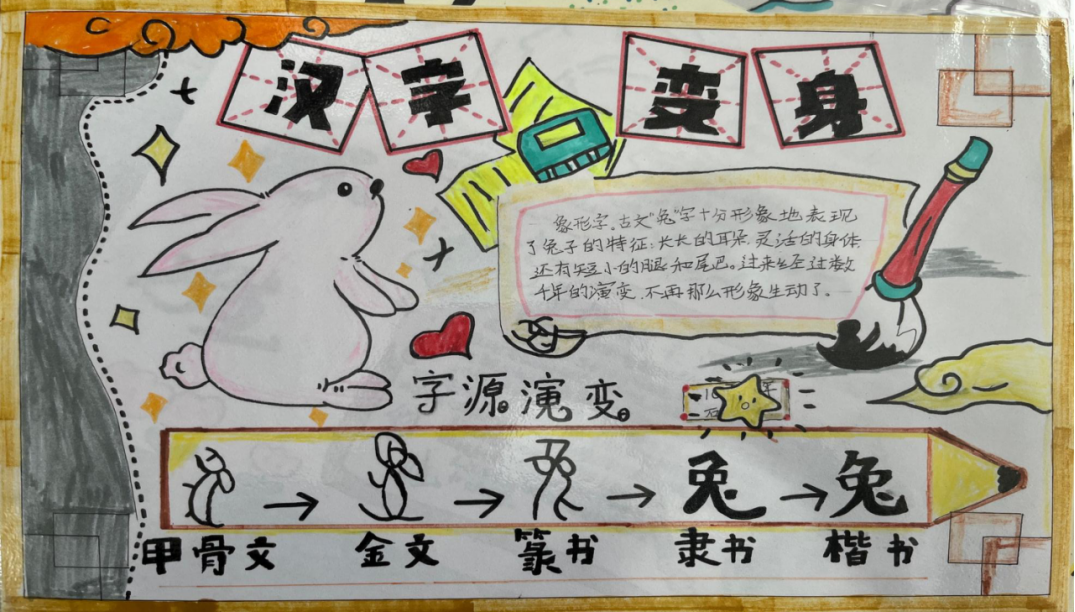 汉字变身
象形字。古文"兔"字十分形象地表现
了兔子的特征:长长的耳朵,灵活的身体,
还有短小的腿和尾巴。过来经过数
千年的演变,不再那么形象生动了。
字源演变。
兔 兔
甲骨文 金文 篆书 隶书 楷书